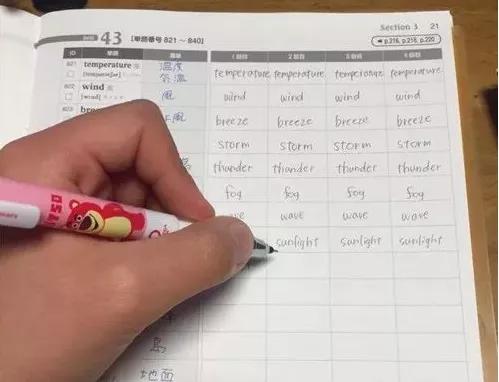 Section 3 21
43 [単語番号 821 ~ 840]
p.216, p.218, p.220
ID 単語 意味 1回目 2回目 3回目 4回目
821 temperature 温度 temperature temperature temperature temperature
気温
822 wind 風 wind wind wind wind
[wɪnd]
823 風 breeze breeze breeze breeze
storm storm storm storm
thunder thunder thunder thunder
fog fog fog fog
wave wave wave
sunlight sunlight sunlight
島
地面